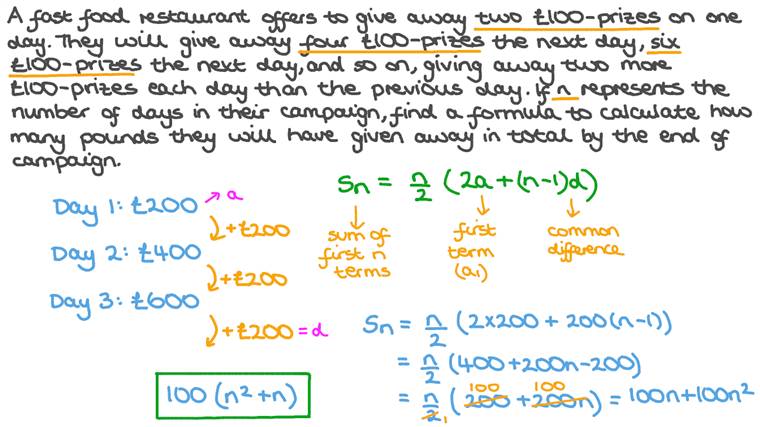 A fast food restaurant offers to give away two £100-prizes on one
day. They will give away four £100-prizes the next day, six
£100-prizes the next day, and so on, giving away two more
£100-prizes each day than the previous day. If n represents the
number of days in their campaign, find a formula to calculate how
many pounds they will have given away in total by the end of
campaign.
Sn = n/2 (2a + (n-1)d)
sum of first n terms
first term (a₁)
common difference
Day 1: £200 → a
+£200
Day 2: £400
+£200
Day 3: £600
+£200 = d
Sn = n/2 (2×200 + 200(n-1))
= n/2 (400 + 200n - 200)
100 100
= n/2 (200 + 200n) = 100n + 100n²
1
100 (n² + n)